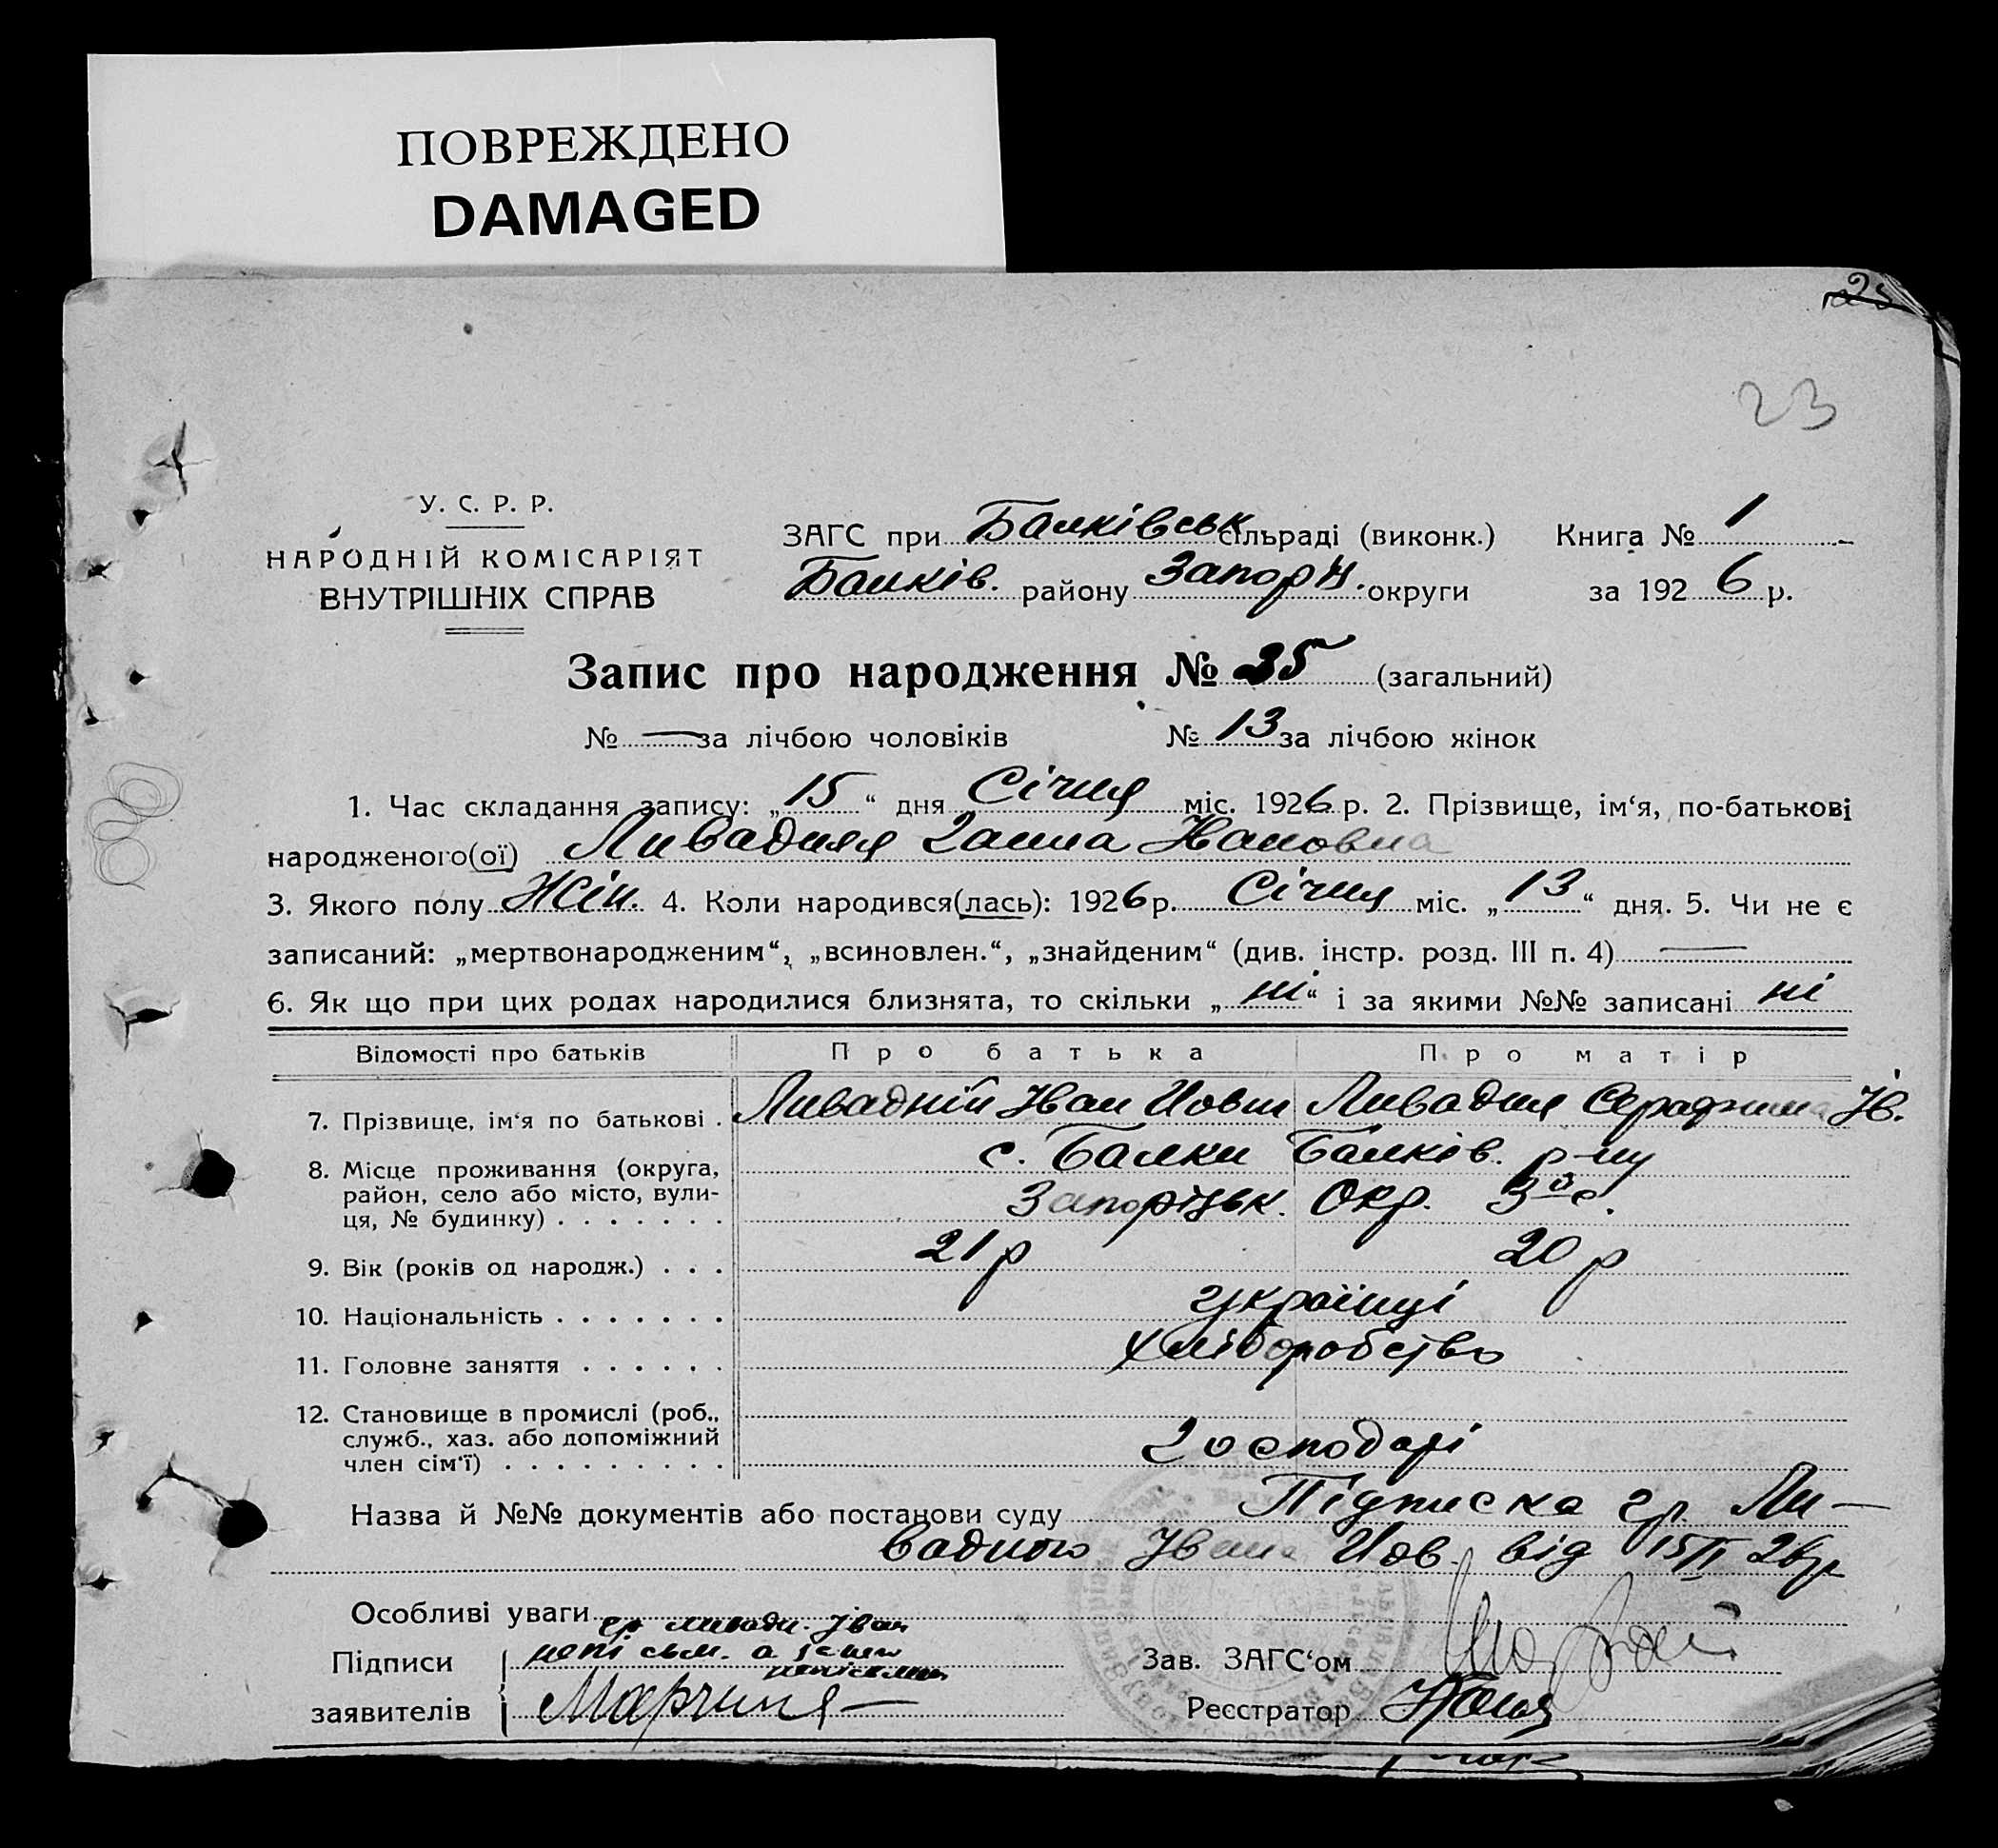 ПОВРЕЖДЕНО
DAMAGED
25
23
У. С. Р. Р.
НАРОДНІЙ КОМІСАРІЯТ
ВНУТРІШНІХ СПРАВ
ЗАГС при Балківськ сільраді (виконк.) Книга № 1
Балків. району Запоріз. округи за 1926 р.
Запис про народження № 35 (загальний)
№ — за лічбою чоловіків № 13 за лічбою жінок
1. Час складання запису: „15“ дня Січня міс. 1926 р. 2. Прізвище, ім‘я, по-батькові
народженого(ої) Ливадняя Ганна Ивановна
3. Якого полу Жін. 4. Коли народився(лась): 1926 р. Січня міс. „13“ дня. 5. Чи не є
записаний: „мертвонародженим“, „всиновлен.“, „знайденим“ (див. інстр. розд. III п. 4) —
6. Як що при цих родах народилися близнята, то скільки „ні“ і за якими №№ записані ні
Відомості про батьків Про батька Про матір
7. Прізвище, ім‘я по батькові . Ливадній Іван Иович Ливадня Серафима Ів.
8. Місце проживання (округа, район, село або місто, вулиця, № будинку) . . . . . . . с. Балки Балків. р-ну
Запорізьк. Окр.
9. Вік (років од народж.) . . . 21 р 20 р
10. Національність . . . . . . . українці
11. Головне заняття . . . . . . хліборобство
12. Становище в промислі (роб., служб., хаз. або допоміжний член сім‘ї) . . . . . . . . . Господарі
Назва й №№ документів або постанови суду Підписка гр. Ли-
вадного Івана Иов. від 15/I 26 р
Особливі уваги
Підписи гр. Ливадн. Іван
заявителів
Зав. ЗАГС‘ом
Реєстратор